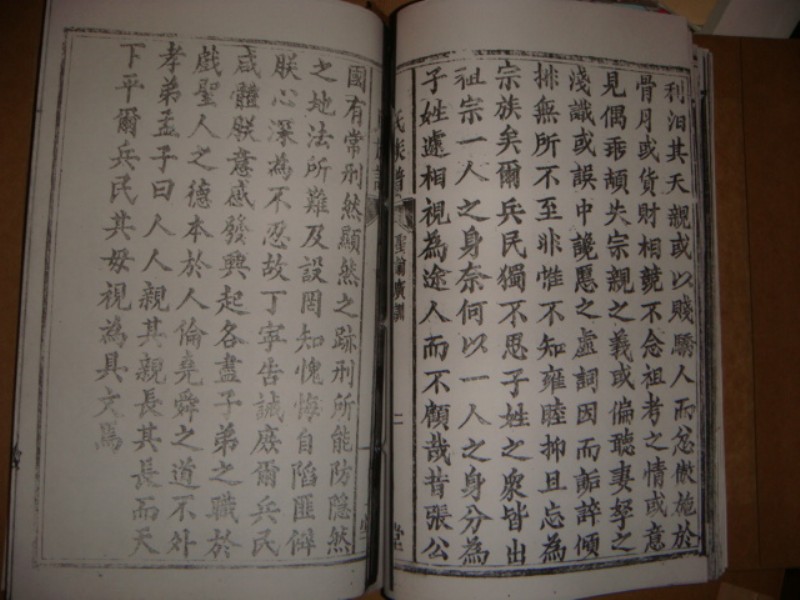 利汩其天親或以賤驕人而忿傲施於
骨月或貨財相競不念祖考之情或意
見偶乖頓失宗親之義或偏聽妻孥之
淺識或誤中讒慝之虛詞因而詬誶傾
排無所不至非惟不知雍睦抑且忘為
宗族矣爾兵民獨不思子姓之衆皆出
祖宗一人之身奈何以一人之身分為
子姓遽相視為途人而不顧哉昔張公
氏族譜
聖諭廣訓
二
堂
國有常刑然顯然之跡刑所能防隱然
之地法所難及設罔知愧悔自陷匪僻
朕心深為不忍故丁寧告誡庶爾兵民
咸體朕意感發興起各盡子弟之職於
戲聖人之德本於人倫堯舜之道不外
孝弟孟子曰人人親其親長其長而天
下平爾兵民其毋視為具文焉